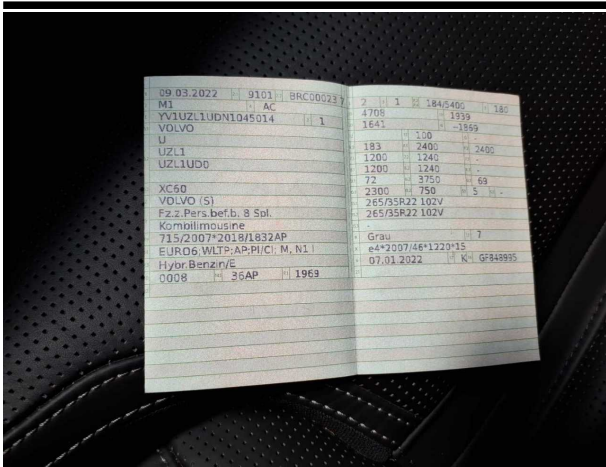 09.03.2022 9101 BRC00023 7
M1 AC
YV1UZL1UDN1045014 1
VOLVO
U
UZL1
UZL1UD0
XC60
VOLVO (S)
Fz.z.Pers.bef.b. 8 Spl.
Kombilimousine
715/2007*2018/1832AP
EURO6;WLTP;AP;PI/CI; M, N1 I
Hybr.Benzin/E
0008 36AP 1969
2 1 184/5400 180
4708 1939
1641 -1869
100 -
183 2400 2400
1200 1240 -
1200 1240 -
72 3750 69
2300 750 5 -
265/35R22 102V
265/35R22 102V
-
Grau 7
e4*2007/46*1220*15
07.01.2022 K GF848935